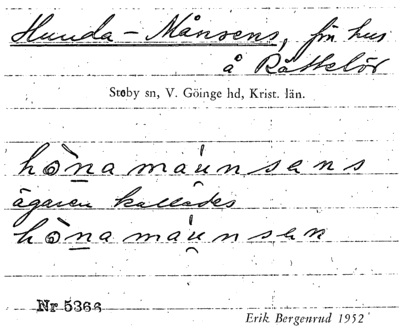 Hunda-Månsens, fr. hus
å Råttelöv
Stoby sn, V. Göinge hd, Krist. län.
hònamáunsens
ägaren kallades
hònamáunsen
Nr 5366
Erik Bergenrud 1952